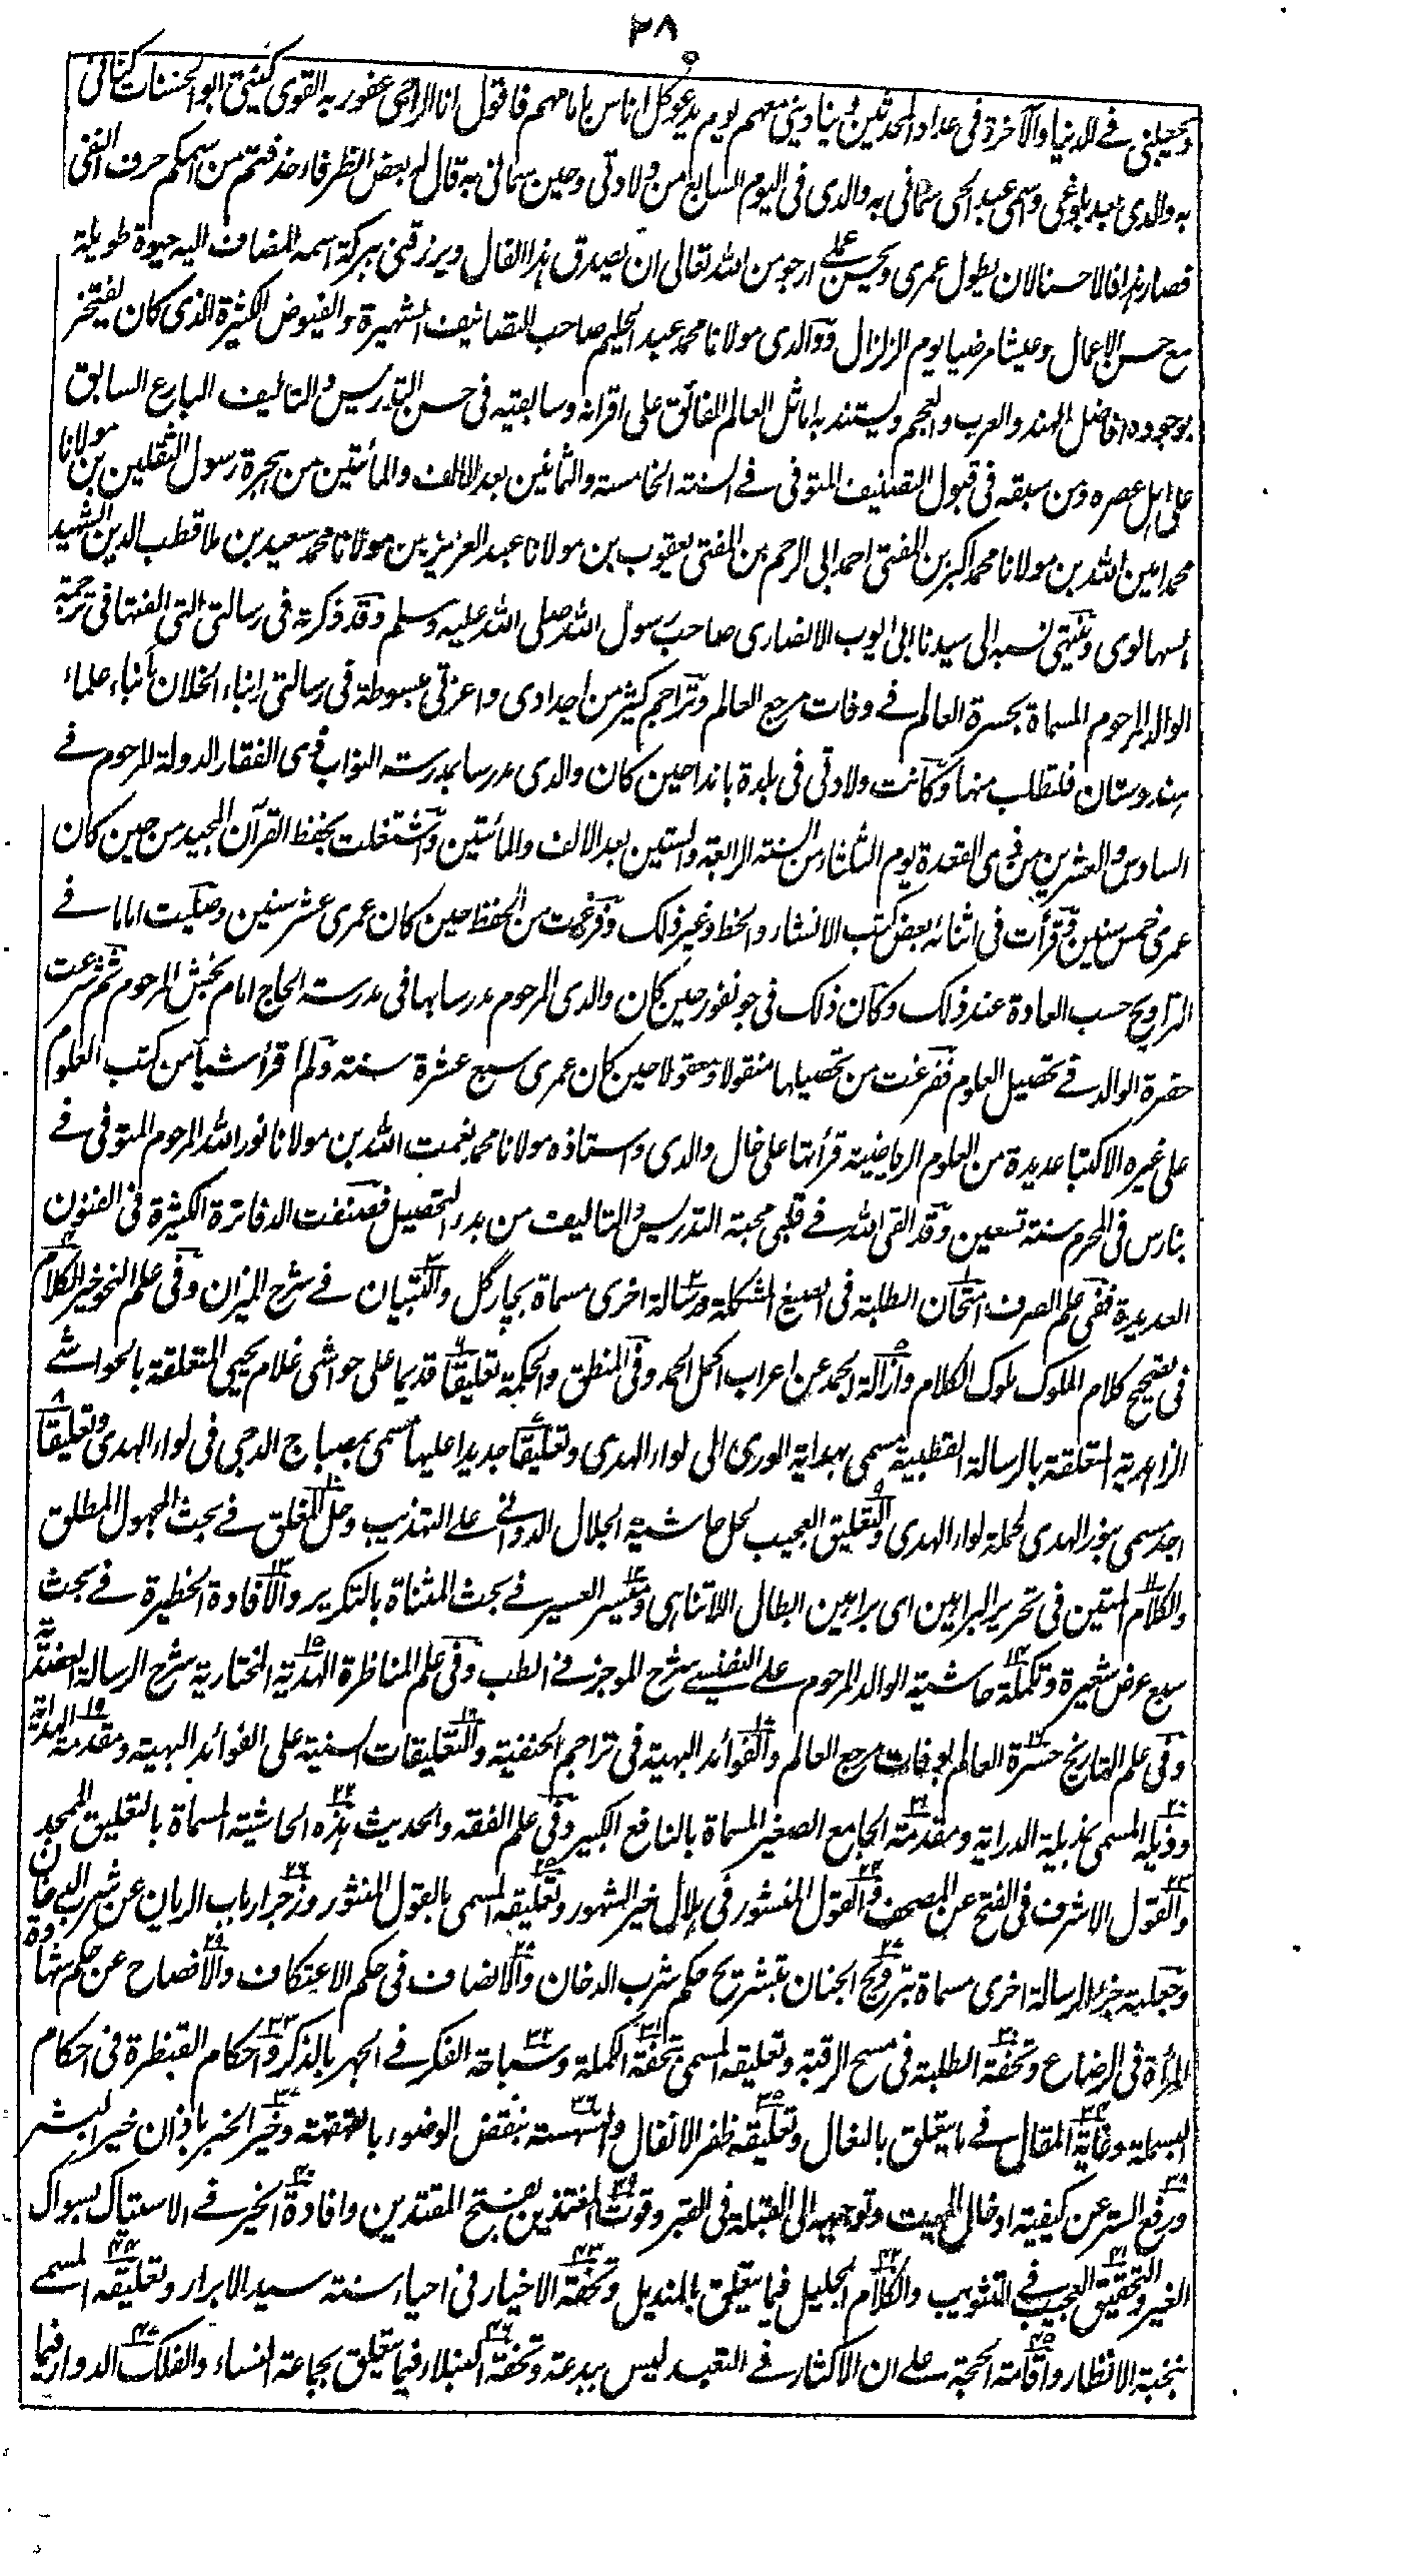 ٢٨
ويجعلني في الدنيا والآخرة في عداد المحدثين وينادينى معهم يوم يدعو كل اناس بامامهم فاقول انا الراجى عفو ربه القوى كنيتى ابو الحسنات كنانى
به والدى بعد بلوغى واسمى عبد الحى سمانى به والدى فى اليوم السابع من ولادتى وحين سمانى به قال له بعض الظرفاء حذفتم من اسمكم حرف النفى
فصار هذا فالا حسنا لان يطول عمرى ويحسن عملى ارجو من الله تعالى ان يصدق هذا الفال ويرزقنى ببركة اسمه المضاف اليه حيوة طويلة
مع حسن الاعمال وعيشا مرضيا يوم الزلزال ووالدى مولانا محمد عبد الحليم صاحب التصانيف الشهيرة والفيوض الكثيرة الذى كان يفتخر
بوجوده افاضل الهند والعرب والعجم ويستند به اماثل العالم الفائق على اقرانه وسابقيه فى حسن التدريس والتاليف البارع السابق
على اهل عصره ومن سبقه فى قبول التصنيف المتوفى فى السنة الخامسة والثمانين بعد الالف والمأتين من هجرة رسول الثقلين بن مولانا
محمد امين الله بن مولانا محمد اكبر بن المفتى احمد ابى الرحم بن المفتى يعقوب بن مولانا عبد العزيز بن مولانا محمد سعيد بن ملا قطب الدين الشهيد
السهالوى وينتهى نسبه الى سيدنا ابى ايوب الانصارى صاحب رسول الله صلى الله عليه وسلم وقد ذكرته فى رسالتى التى الفتها فى ترجمة
الوالد المرحوم المسماة بحسرة العالم فى وفات مرجع العالم وتراجم كثير من اجدادى واعزتى مبسوطة فى رسالتى انباء الخلان بأنباء علماء
هندوستان فلتطلب منها وكانت ولادتى فى بلدة باندا حين كان والدى مدرسا بمدرسة النواب ذوى الفقار الدولة المرحوم فى
السادس والعشرين من ذى القعدة يوم الثلثاء من السنة الرابعة والستين بعد الالف والمأتين واشتغلت بحفظ القرآن المجيد من حين كان
عمرى خمس سنين وقرأت فى اثنائه بعض كتب الانشاء والخط وغير ذلك وفرغت من الحفظ حين كان عمرى عشر سنين وصليت اماما فى
التراويح حسب العادة عند ذلك وكان ذلك فى جونفور حين كان والدى المرحوم مدرسا بها فى مدرسة الحاج امام بخش المرحوم ثم شرعت
حضرة الوالد فى تحصيل العلوم ففرغت من تحصيلها منقولا ومعقولا حين كان عمرى سبع عشرة سنة ولم اقرأ شيأ من كتب العلوم
على غيره الا كتبا عديدة من العلوم الرياضية قرأتها على خال والدى واستاذه مولانا محمد نعمت الله بن مولانا نور الله المرحوم المتوفى فى
بنارس فى المحرم سنة تسعين وقد القى الله فى قلبى محبة التدريس والتاليف من بدء التحصيل فصنفت الدفاترة الكثيرة فى الفنون
العديدة ففى علم الصرف امتحان الطلبة فى الصيغ المشكلة ورسالة اخرى مسماة بچارگل والتبيان فى شرح الميزان وفى علم النحو خير الكلام
فى تصحيح كلام الملوك ملوك الكلام وازالة الجمد عن اعراب اكمل الحمد وفى المنطق والحكمة تعليقا قديما على حواشى غلام يحيى المتعلقة بالحواشى
الزاهدية المتعلقة بالرسالة القطبية مسمى بهداية الورى الى لواء الهدى وتعليقا جديدا عليها مسمى بمصباح الدجى فى لواء الهدى وتعليقا
اجد مسمى بنور الهدى لحملة لواء الهدى والتعليق العجيب لحل حاشية الجلال الدوانى على التهذيب وحل المغلق فى بحث المجهول المطلق
والكلام المتين فى تحرير البراهين اى براهين ابطال اللاتناهى وميسر العسير فى بحث المثناة بالتكرير والافادة الخطيرة فى بحث
سبع عرض شعيرة وتكملة حاشية الوالد المرحوم على النفيسى شرح الموجز فى الطب وفى علم المناظرة الهدية المختارية شرح الرسالة العضدية
وفى علم التاريخ حسرة العالم بوفات مرجع العالم والفوائد البهية فى تراجم الحنفية والتعليقات السنية على الفوائد البهية ومقدمة الهداية
وذيله المسمى بمذيلة الدراية ومقدمة الجامع الصغير المسماة بالنافع الكبير وفى علم الفقه والحديث هذه الحاشية المسماة بالتعليق الممجد
والقول الاشرف فى الفتح عن المصحف والقول المنشور فى هلال خير الشهور وتعليقه المسمى بالقول المنثور وزجر ارباب الريان عن شرب الدخان
وجعلته جزء الرسالة اخرى مسماة بترويح الجنان بتشريح حكم شرب الدخان والانصاف فى حكم الاعتكاف والافصاح عن حكم شهادة
المرأة فى الرضاع وتحفة الطلبة فى مسح الرقبة وتعليقه المسمى بتحفة الكملة وسباحة الفكر فى الجهر بالذكر واحكام القنطرة فى احكام
البسملة وغاية المقال فى ما يتعلق بالنعال وتعليقه ظفر الانفال والهسهسة بنقض الوضوء بالقهقهة وخير الخبر باذان خير البشر
ورفع الستر عن كيفية ادخال الميت وتوجيهه الى القبلة فى القبر وقوت المغتذين بفتح المقتدين وافادة الخير فى الاستياك بسواك
الغير والتحقيق العجيب فى التثويب والكلام الجليل فيما يتعلق بالمنديل وتحفة الاخيار فى احياء سنة سيد الابرار وتعليقه المسمى
بنخبة الانظار واقامة الحجة على ان الاكثار فى التعبد ليس ببدعة وتحفة النبلاء فيما يتعلق بجماعة النساء والفلك الدوار فيما